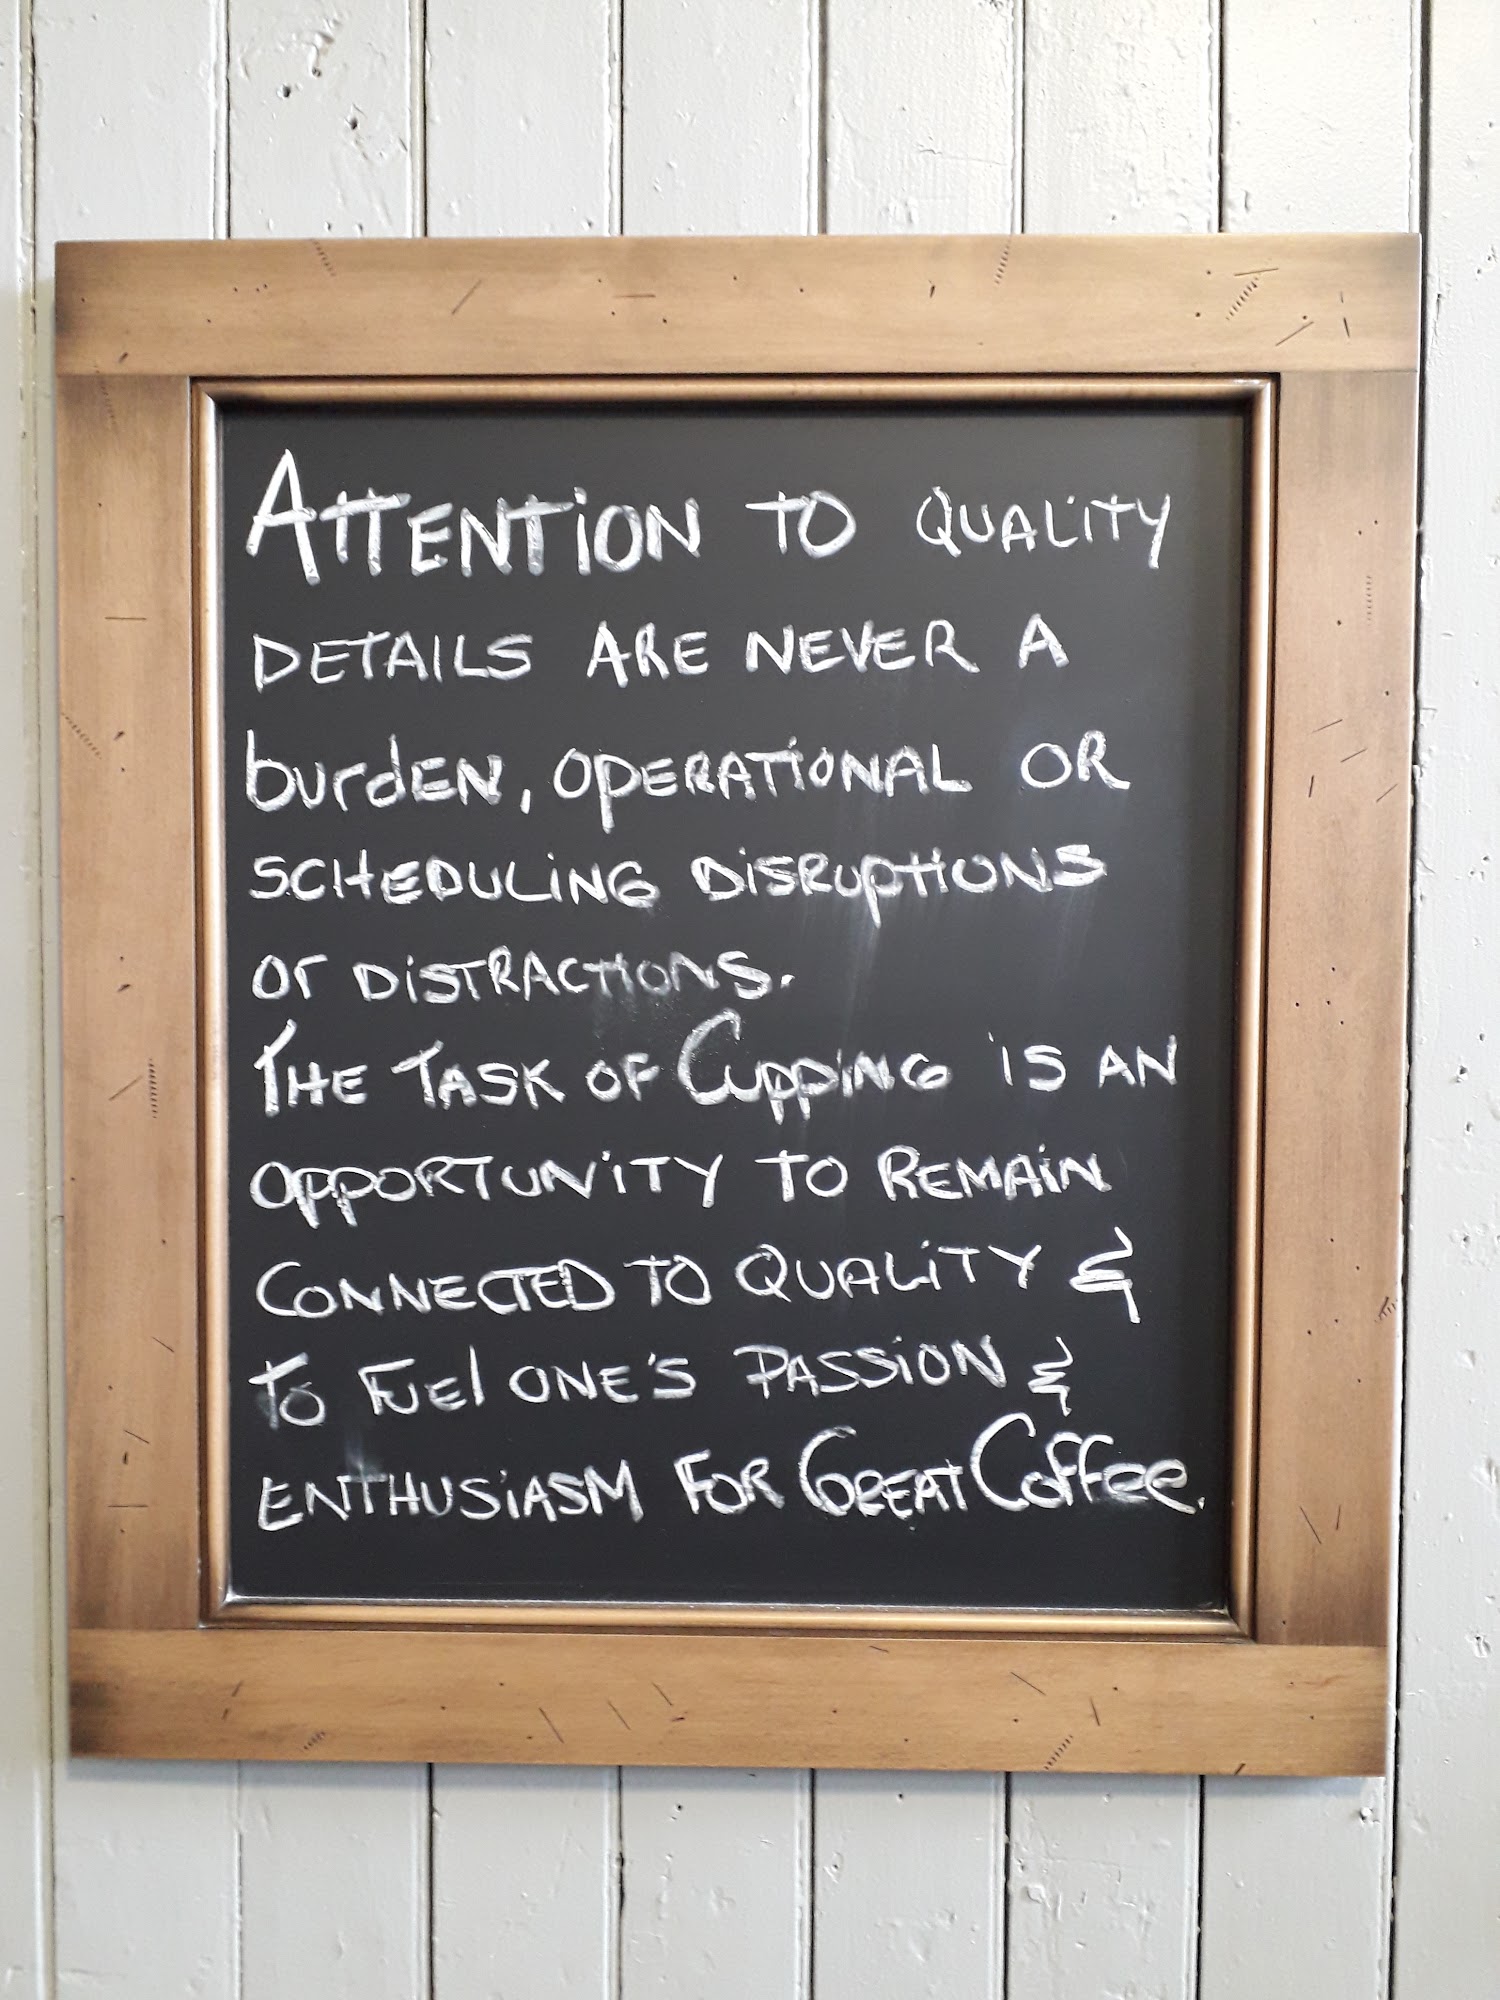 ATTENTiON TO QUALiTY
DETAILS ARE NEVER A
burdEN, OPERATiONAL OR
SCHEDULiNG DiSRUPTIONS
or DiSTRACTIONS.
THE TASK OF CUPPiNG iS AN
OPPORTUNiTY TO REMAiN
CONNECTED TO QUALiTY &
TO FUEl ONE'S PASSiON &
ENTHUSiASM FOR GREAT COffee.